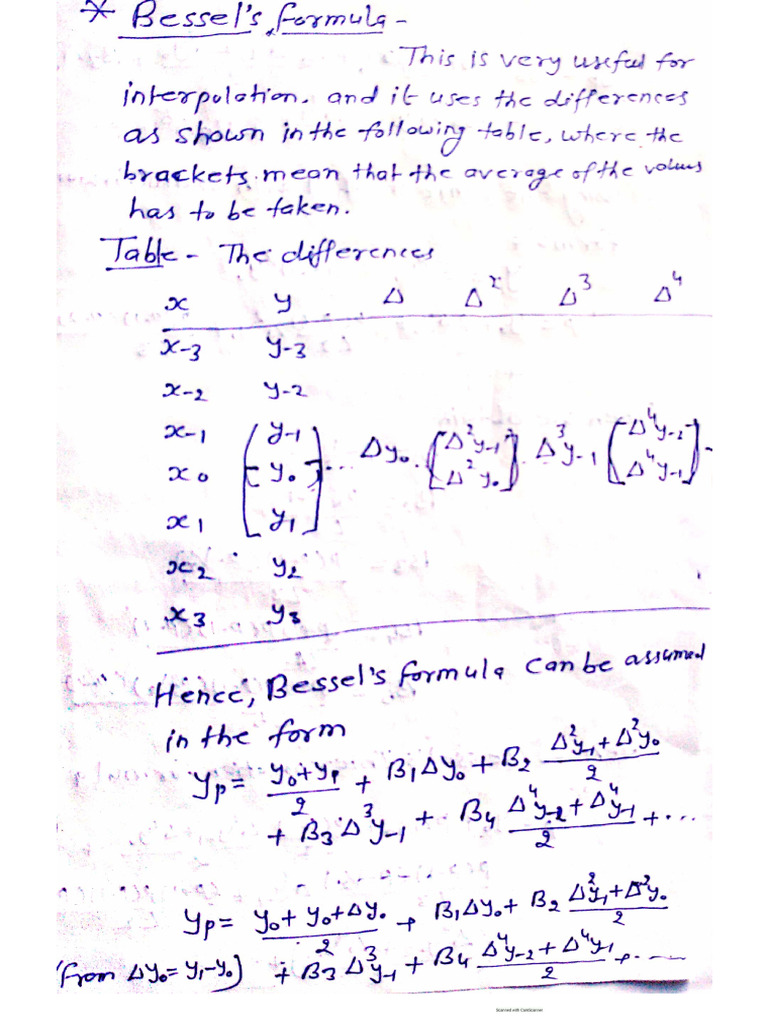 * Bessel's formula -
This is very useful for
interpolation. and it uses the differences
as shown in the following table, where the
brackets mean that the average of the values
has to be taken.
Table - The differences
x y Δ Δ² Δ³ Δ⁴
x-3 y-3
x-2 y-2
x-1 y-1
x0 y0 ... Δy0 . [Δ²y-1 Δ²y0] Δ³y-1 [Δ⁴y-2 Δ⁴y-1] -
x1 y1
x2 y2
x3 y3
Hence, Bessel's formula can be assumed
in the form
yp = (y0 + yp)/2 + B1Δy0 + B2 (Δ²y-1 + Δ²y0)/2
+ B3 Δ³y-1 + B4 (Δ⁴y-2 + Δ⁴y-1)/2 + ...
yp = (y0 + y0 + Δy0)/2 + B1Δy0 + B2 (Δ²y-1 + Δ²y0)/2
(from Δy0 = y1 - y0) + B3 Δ³y-1 + B4 (Δ⁴y-2 + Δ⁴y-1)/2 + ...
Scanned with CamScanner